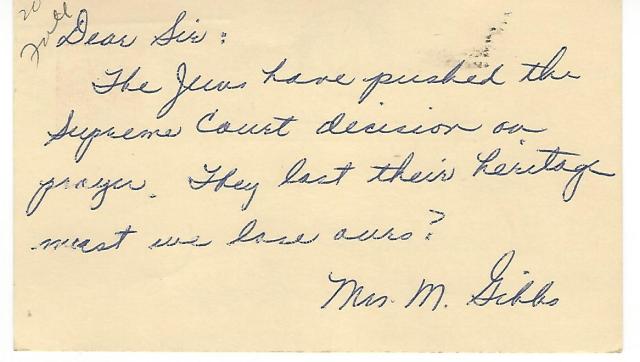 Dear Sir:
The Jews have pushed the
Supreme Court decision on
prayer. They lost their heritage
must we lose ours?
Mrs. M. Gibbs